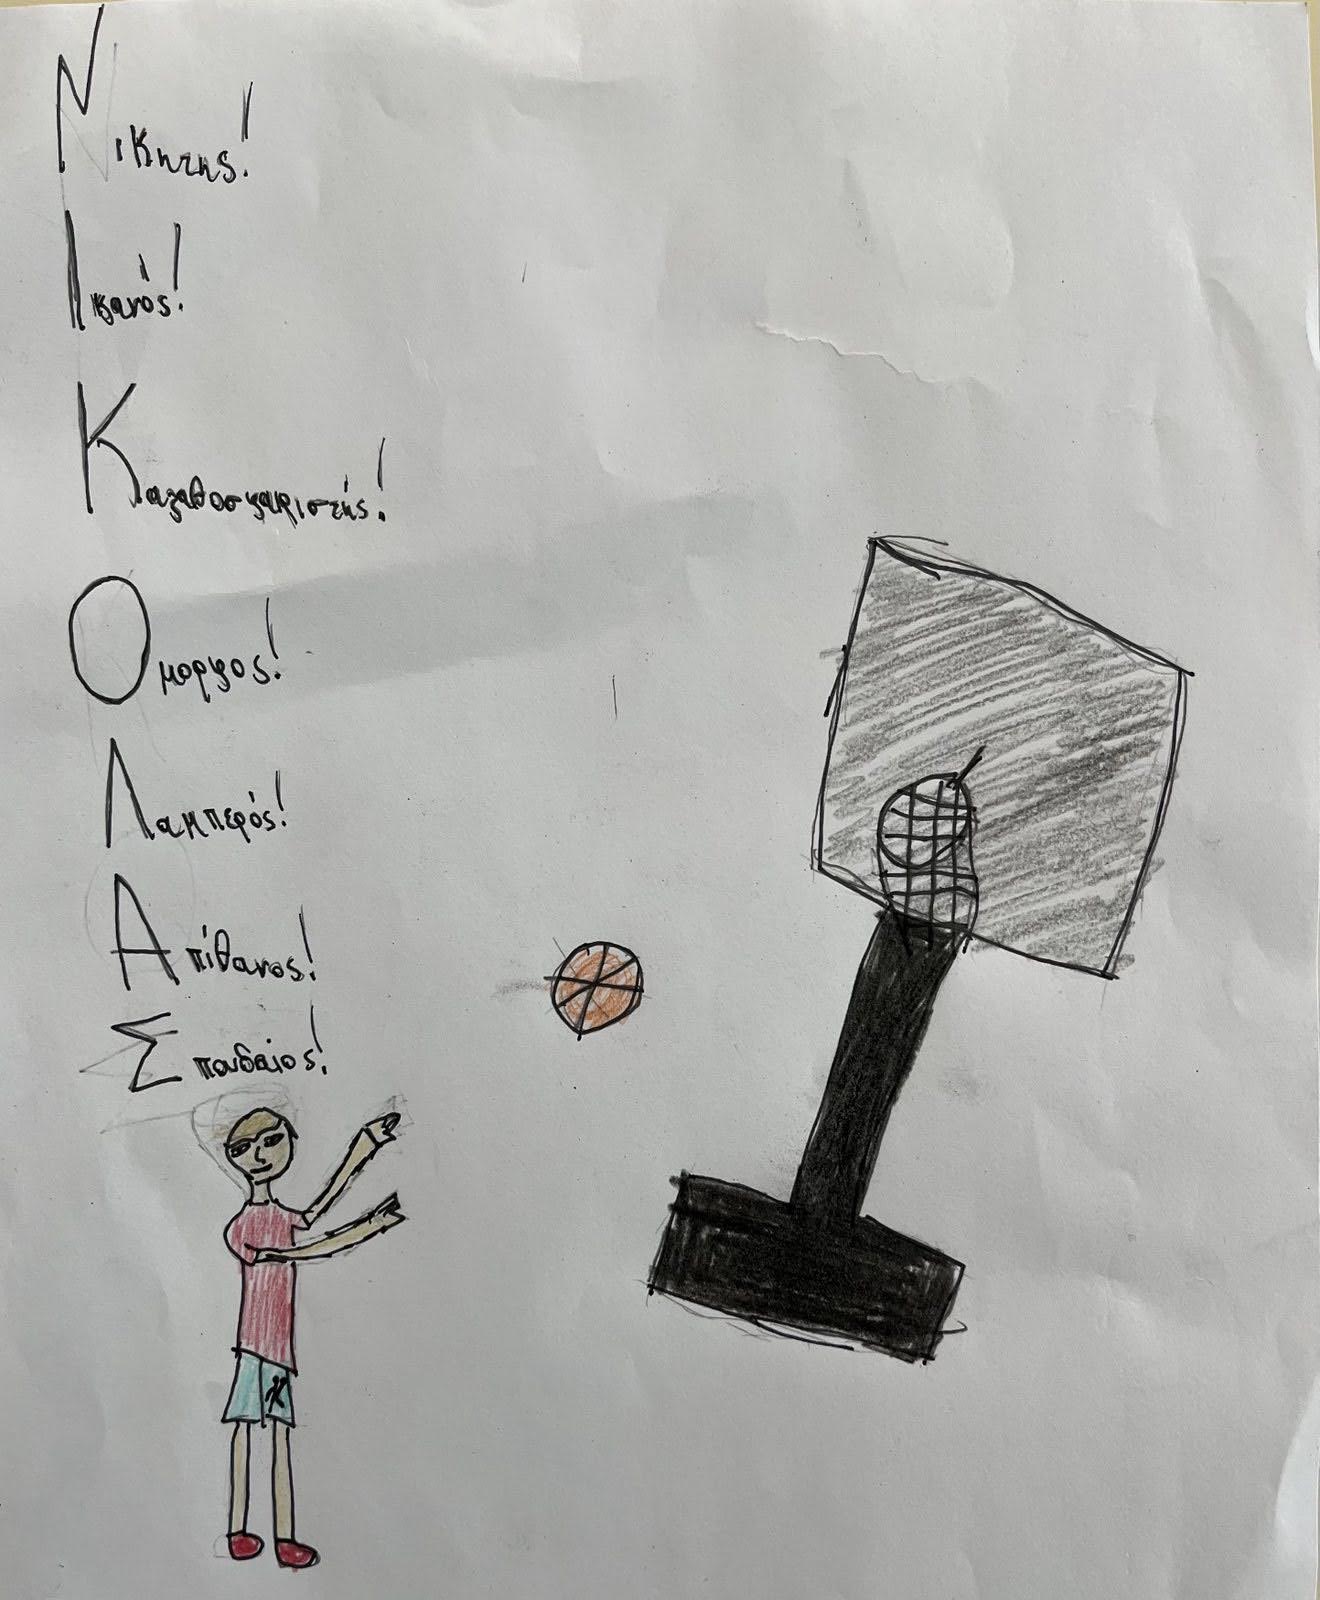 Νικητης!
Ικανός!
Καλαθοσκαριστής!
Ομορφος!
Λαμπερός!
Απίθανος!
Σπουδαίος!
K